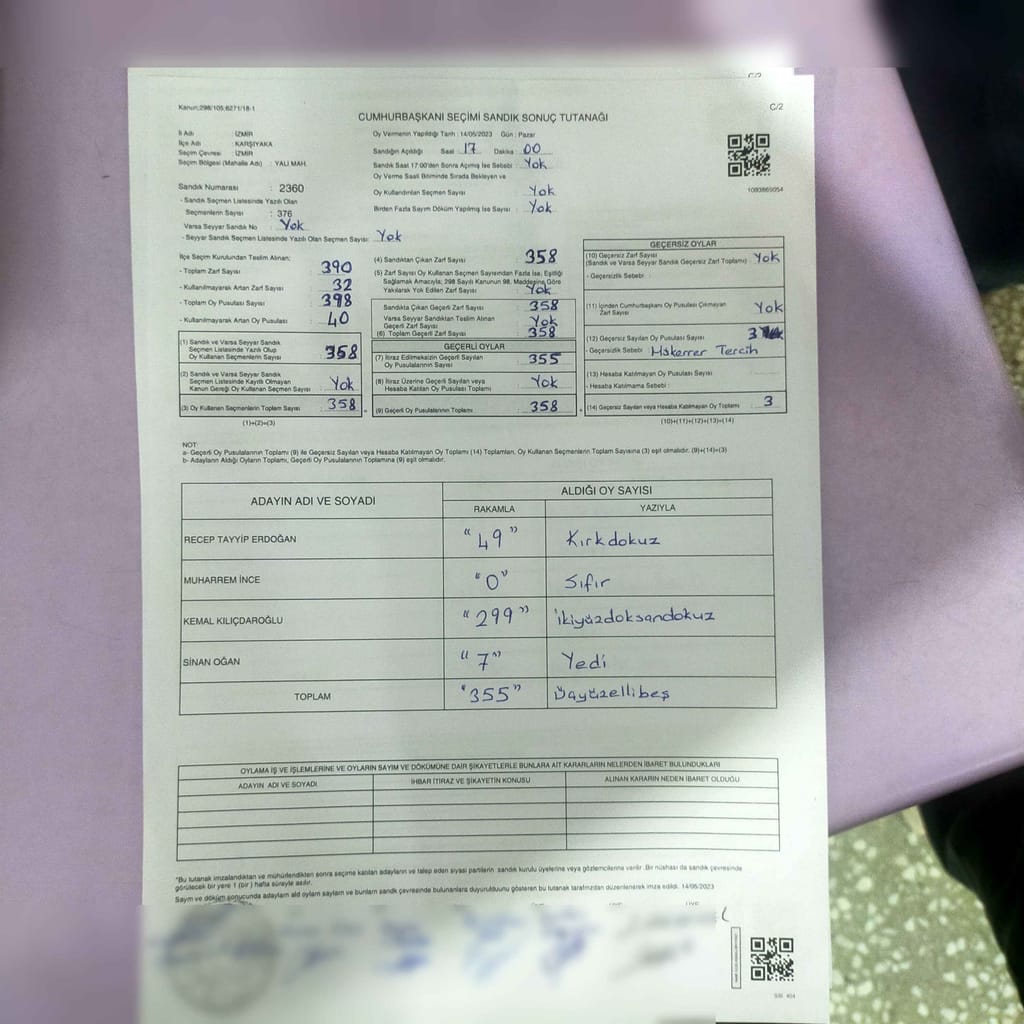 C/2
Kanun:298/105;6271/18-1
C/2
CUMHURBAŞKANI SEÇİMİ SANDIK SONUÇ TUTANAĞI
İl Adı : İZMİR
İlçe Adı : KARŞIYAKA
Seçim Çevresi : İZMİR
Seçim Bölgesi (Mahalle Adı) : YALI MAH.
Oy Vermenin Yapıldığı Tarih : 14/05/2023 Gün : Pazar
Sandığın Açıldığı Saat : 17 Dakika : 00
Sandık Saat 17:00'den Sonra Açılmış İse Sebebi : Yok
Oy Verme Saati Bitiminde Sırada Bekleyen ve
Oy Kullandırılan Seçmen Sayısı : Yok
Birden Fazla Sayım Döküm Yapılmış İse Sayısı : Yok
1093869054
Sandık Numarası : 2360
- Sandık Seçmen Listesinde Yazılı Olan
Seçmenlerin Sayısı : 376
Varsa Seyyar Sandık No : Yok
- Seyyar Sandık Seçmen Listesinde Yazılı Olan Seçmen Sayısı: Yok
İlçe Seçim Kurulundan Teslim Alınan;
- Toplam Zarf Sayısı : 390
- Kullanılmayarak Artan Zarf Sayısı : 32
- Toplam Oy Pusulası Sayısı : 398
- Kullanılmayarak Artan Oy Pusulası : 40
(1) Sandık ve Varsa Seyyar Sandık
Seçmen Listesinde Yazılı Olup
Oy Kullanan Seçmenlerin Sayısı : 358
(2) Sandık ve Varsa Seyyar Sandık
Seçmen Listesinde Kayıtlı Olmayan
Kanun Gereği Oy Kullanan Seçmen Sayısı : Yok
(3) Oy Kullanan Seçmenlerin Toplam Sayısı : 358
(1)+(2)=(3)
(4) Sandıktan Çıkan Zarf Sayısı : 358
(5) Zarf Sayısı Oy Kullanan Seçmen Sayısından Fazla İse, Eşitliği
Sağlamak Amacıyla; 298 Sayılı Kanunun 98. Maddesine Göre
Yakılarak Yok Edilen Zarf Sayısı : Yok
Sandıkta Çıkan Geçerli Zarf Sayısı : 358
Varsa Seyyar Sandıktan Teslim Alınan
Geçerli Zarf Sayısı : Yok
(6) Toplam Geçerli Zarf Sayısı : 358
GEÇERLİ OYLAR
(7) İtiraz Edilmeksizin Geçerli Sayılan
Oy Pusulalarının Sayısı : 355
(8) İtiraz Üzerine Geçerli Sayılan veya
Hesaba Katılan Oy Pusulaları Toplamı : Yok
(9) Geçerli Oy Pusulalarının Toplamı : 358
GEÇERSİZ OYLAR
(10) Geçersiz Zarf Sayısı
(Sandık ve Varsa Seyyar Sandık Geçersiz Zarf Toplamı) : Yok
- Geçersizlik Sebebi :
(11) İçinden Cumhurbaşkanı Oy Pusulası Çıkmayan
Zarf Sayısı : Yok
(12) Geçersiz Sayılan Oy Pusulası Sayısı : 3
- Geçersizlik Sebebi : Mükerrer Tercih
(13) Hesaba Katılmayan Oy Pusulası Sayısı :
- Hesaba Katılmama Sebebi :
(14) Geçersiz Sayılan veya Hesaba Katılmayan Oy Toplamı : 3
(10)+(11)+(12)+(13)=(14)
NOT:
a- Geçerli Oy Pusulalarının Toplamı (9) ile Geçersiz Sayılan veya Hesaba Katılmayan Oy Toplamı (14) Toplamları, Oy Kullanan Seçmenlerin Toplam Sayısına (3) eşit olmalıdır. (9)+(14)=(3)
b- Adayların Aldığı Oyların Toplamı, Geçerli Oy Pusulalarının Toplamına (9) eşit olmalıdır.
ADAYIN ADI VE SOYADI ALDIĞI OY SAYISI
RAKAMLA YAZIYLA
RECEP TAYYİP ERDOĞAN "49" Kırkdokuz
MUHARREM İNCE "0" Sıfır
KEMAL KILIÇDAROĞLU "299" ikiyüzdoksandokuz
SİNAN OĞAN "7" Yedi
TOPLAM "355" Üçyüzellibeş
OYLAMA İŞ VE İŞLEMLERİNE VE OYLARIN SAYIM VE DÖKÜMÜNE DAİR ŞİKAYETLERLE BUNLARA AİT KARARLARIN NELERDEN İBARET BULUNDUKLARI
ADAYIN ADI VE SOYADI İHBAR İTİRAZ VE ŞİKAYETİN KONUSU ALINAN KARARIN NEDEN İBARET OLDUĞU
"Bu tutanak imzalandıktan ve mühürlendikten sonra seçime katılan adayların ve talep eden siyasi partilerin sandık kurulu üyelerine veya gözlemcilerine verilir. Bir nüshası da sandık çevresinde
görülecek bir yere 1 (bir) hafta süreyle asılır.
Sayım ve döküm sonucunda adayların aldığı oyların sayısını ve bunların sandık çevresinde bulunanlara duyurulduğunu gösteren bu tutanak tarafımızdan düzenlenerek imza edildi. 14/05/2023